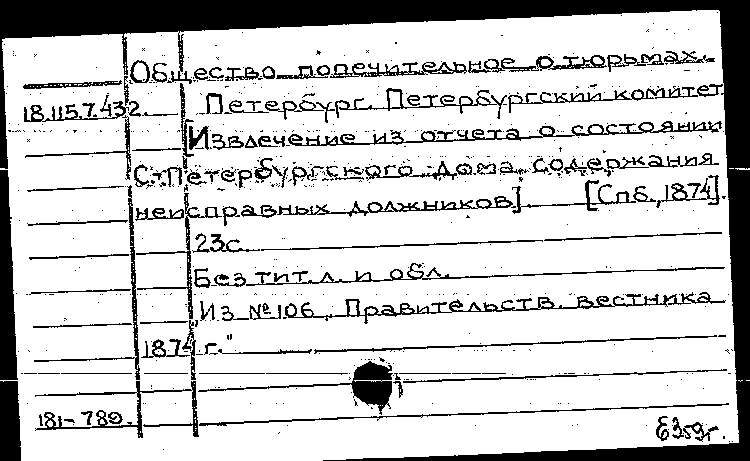 Общество попечительное о тюрьмах.
18.115.7.432. Петербург. Петербургский комитет
[Извлечение из отчета о состоянии
С.-Петербургского дома содержания
неисправных должников]. [Спб., 1874].
23с.
Без тит. л. и обл.
"Из № 106 "Правительств. вестника
1874 г."
181-789.